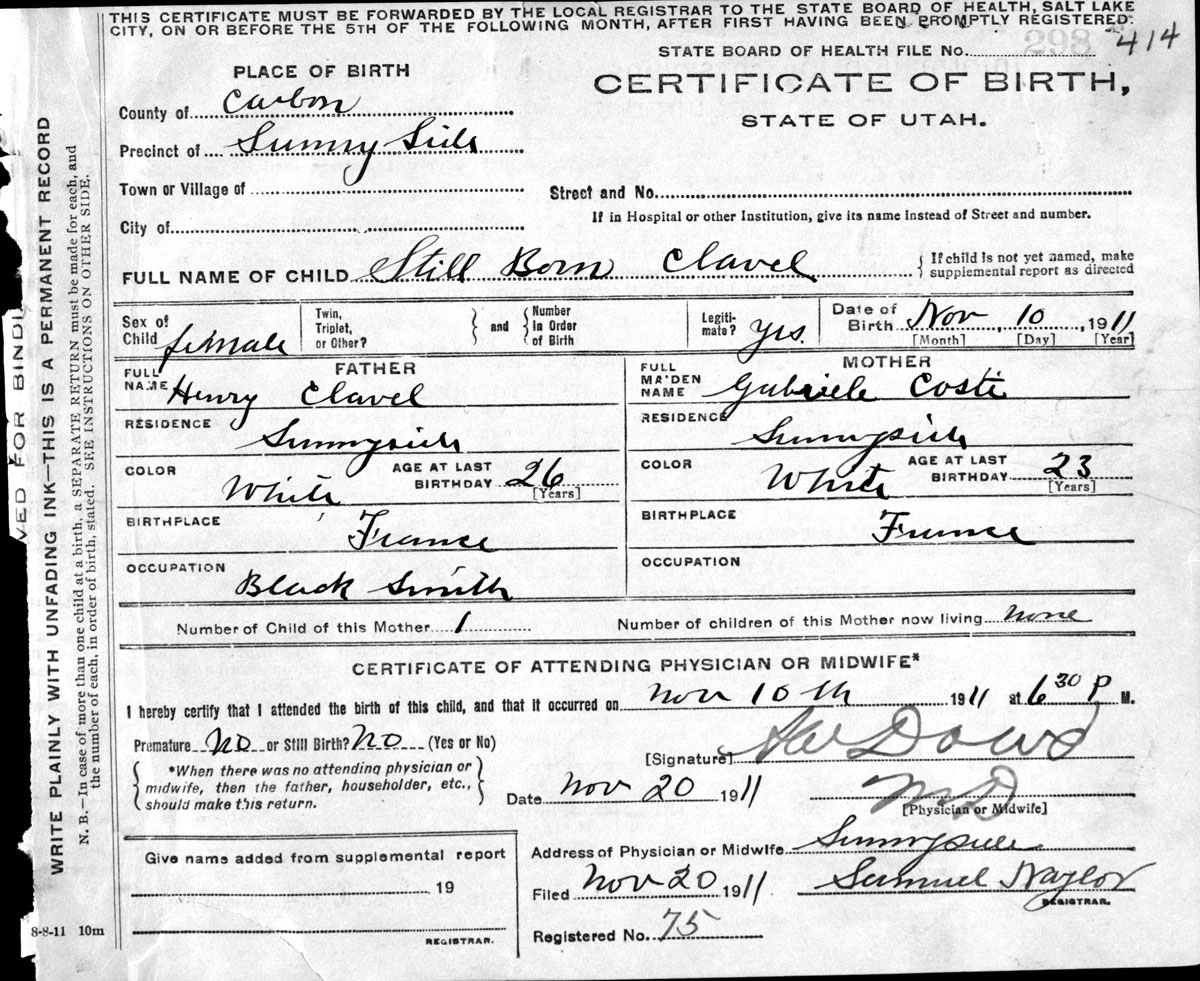 THIS CERTIFICATE MUST BE FORWARDED BY THE LOCAL REGISTRAR TO THE STATE BOARD OF HEALTH, SALT LAKE
CITY, ON OR BEFORE THE 5TH OF THE FOLLOWING MONTH, AFTER FIRST HAVING BEEN PROMPTLY REGISTERED.
298 414
STATE BOARD OF HEALTH FILE No.
PLACE OF BIRTH
CERTIFICATE OF BIRTH,
STATE OF UTAH.
County of Carbon
Precinct of Sunny Side
Town or Village of
Street and No.
City of
If in Hospital or other Institution, give its name instead of Street and number.
FULL NAME OF CHILD Still Born Clavel { If child is not yet named, make
supplemental report as directed
Sex of Child female
Twin, Triplet, or Other? } and { Number In Order of Birth
Legiti-mate? yes.
Date of Birth Nov, 10, 1911
[Month] [Day] [Year]
FATHER
FULL NAME Henry Clavel
MOTHER
FULL MA'DEN NAME Gabriele Coste
RESIDENCE Sunnyside
RESIDENCE Sunnyside
COLOR White AGE AT LAST BIRTHDAY 26 [Years]
COLOR White AGE AT LAST BIRTHDAY 23 [Years]
BIRTHPLACE France
BIRTHPLACE France
OCCUPATION Black Smith
OCCUPATION
Number of Child of this Mother 1 Number of children of this Mother now living none
CERTIFICATE OF ATTENDING PHYSICIAN OR MIDWIFE*
I hereby certify that I attended the birth of this child, and that it occurred on Nov 10th 1911 at 6 30 P M.
Premature No or Still Birth? No (Yes or No)
[Signature] Dowd
{ *When there was no attending physician or
midwife, then the father, householder, etc.,
should make this return. }
Date Nov 20 1911 M D
[Physician or Midwife]
Give name added from supplemental report
19
REGISTRAR.
Address of Physician or Midwife Sunnyside
Filed Nov 20 1911 Samuel Naylor
REGISTRAR.
Registered No. 75
8-8-11 10m
VED FOR BINDI
WRITE PLAINLY WITH UNFADING INK—THIS IS A PERMANENT RECORD
N. B.—In case of more than one child at a birth, a SEPARATE RETURN must be made for each, and
the number of each, in order of birth, stated. SEE INSTRUCTIONS ON OTHER SIDE.